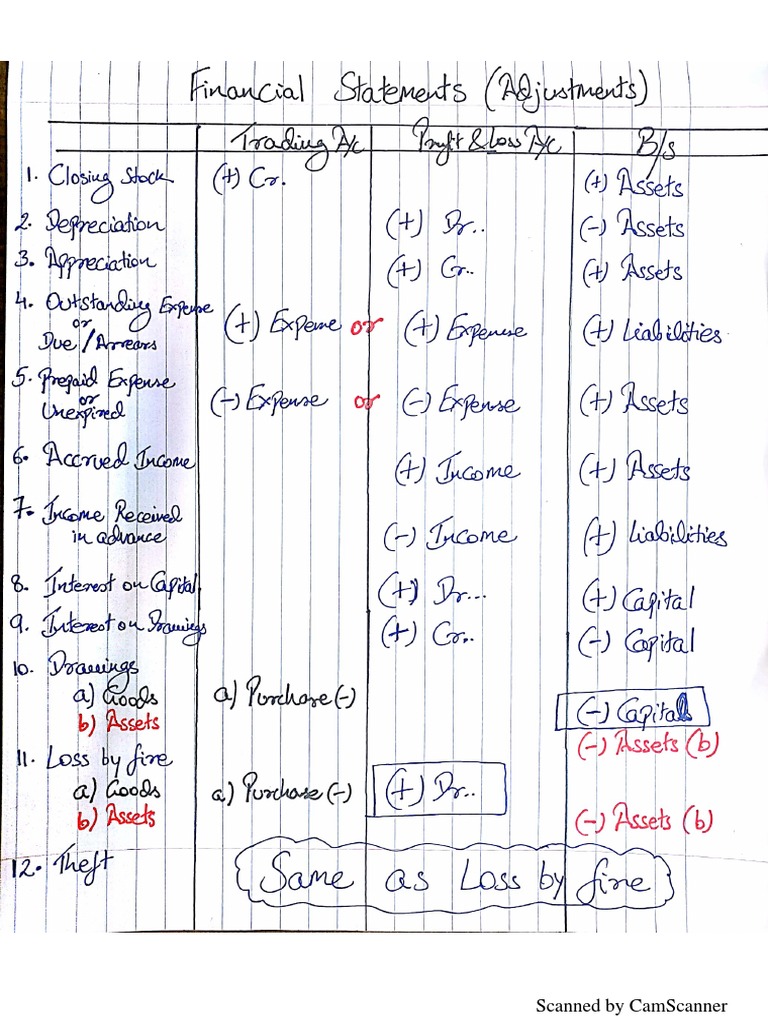 Financial Statements (Adjustments)
Trading A/c Profit & Loss A/c B/s
1. Closing Stock (+) Cr. (+) Assets
2. Depreciation (+) Dr.. (-) Assets
3. Appreciation (+) Cr.. (+) Assets
4. Outstanding Expense
or
Due / Arrears (+) Expense or (+) Expense (+) Liabilities
5. Prepaid Expense
or
Unexpired (-) Expense or (-) Expense (+) Assets
6. Accrued Income (+) Income (+) Assets
7. Income Received
in advance (-) Income (+) Liabilities
8. Interest on Capital (+) Dr... (+) Capital
9. Interest on Drawings (+) Cr.. (-) Capital
10. Drawings
a) Goods a) Purchase (-) (-) Capital
b) Assets (-) Assets (b)
11. Loss by fire
a) Goods a) Purchase (-) (+) Dr..
b) Assets (-) Assets (b)
12. Theft Same as Loss by fire
Scanned by CamScanner